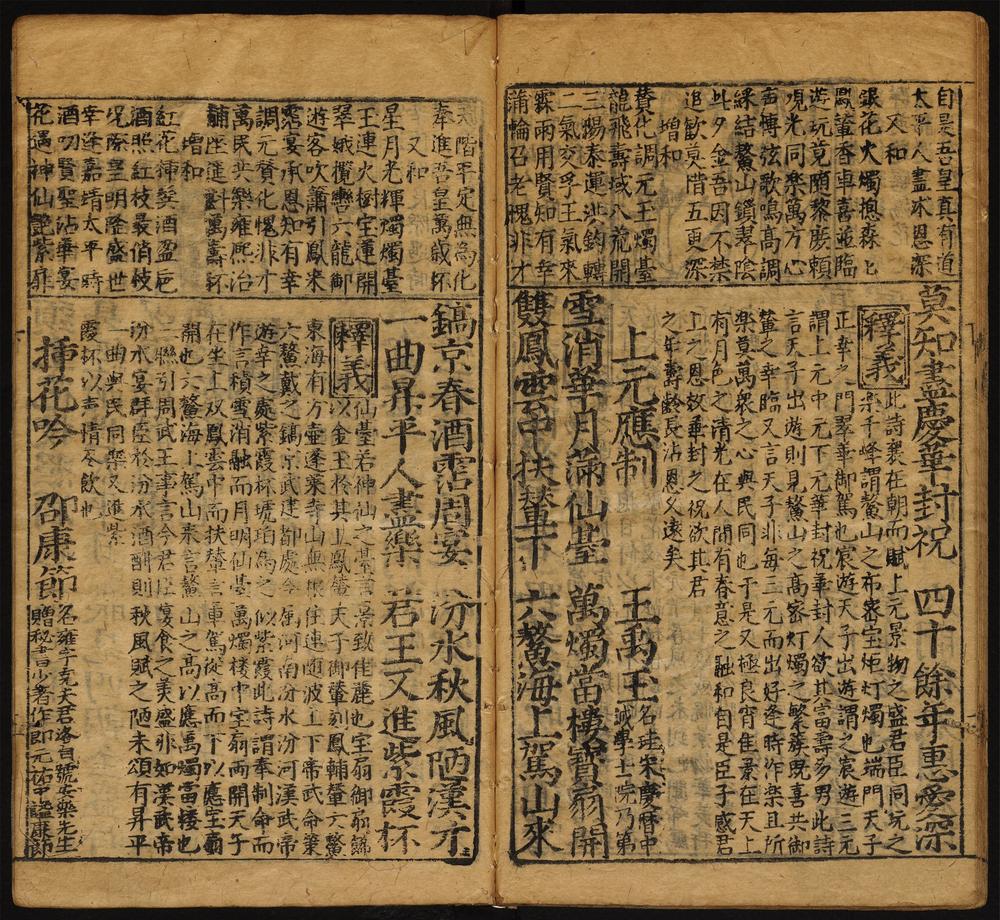 自是吾皇真有道
太平人盡沐恩深
又和
銀花火燭揔森匕
鳳輦香車喜並臨
遊玩竟頋黎庶頼
覌光同樂萬方心
声傳弦歌鳴高調
綵結鰲山鎖翠陰
此夕金吾因不禁
追歡蓂階五更深
增和
賛化調元玉燭臺
龍飛壽域八荒開
三陽泰運洪鈞轉
二氣交孚王氣來
霖雨用賢知有幸
蒲輪召老愧非才
莫知盡慶華封祝 四十餘年惠愛深
釋義 此詩襄在朝而賦上元景物之盛君臣同玩之
楽千峰謂鰲山之布密宝炬灯燭也端門天子
正幸之門翠華御駕也宸遊天子出游謂之宸遊三元
謂上元中元下元華封祝華封人欲其富壽多男此詩
言天子出遊則見鰲山之高密灯燭之繁簇既喜共御
輦之幸臨又言天子非每三元而出好逢時作楽且所
楽莫萬衆之心與民同也于是又極良宵佳景在天上
有月色之清光在人間有春意之融和自是臣子感君
上之恩故華封之祝欲其君
之年壽齡長沾恩又遠矣
上元應制 王禹玉 名珪宋慶曆中
試學士院乃第
雪消華月滿仙臺 萬燭當樓寶扇開
雙鳳雲中扶輦下 六鰲海上駕山來
天階平定無為化
奉進吾皇萬歲杯
又和
星月光輝燭燭臺
王連火樹宝蓮開
翠娥欖轡六龍御
遊客吹簫引鳳來
寵宴承恩知有幸
調元賛化愧非才
萬民共樂雍熙治
輔陛進對萬壽杯
增和
紅花揷髮酒盈巵
酒照紅枝最俏枝
况際皇明隆盛世
幸逢嘉靖太平時
酒叨賢聖沾華宴
花遇神仙艷紫扉
鎬京春酒霑周宴 汾水秋風陋漢才
一曲昇平人盡樂 君王又進紫霞杯
釋義 仙臺若神仙之臺言景致佳麗也宝扇御扇飾
以金王柃其上鳳輦天子御輦刻鳳輔輦六鰲
東海有方壶蓬萊等山無根往連随波上下帝武命策
六鰲戴之鎬京武建都處今属河南汾水汾河漢武帝
遊幸之處紫霞杯琥珀為之似紫霞此詩謂奉制命而
作言積雪消融而月明仙臺萬燭楼中宝扇両開天子
在坐上双鳳雲中而扶輦言車駕從高而下以應宝扇
開也六鰲海上駕山来言鰲山之高以應萬燭當楼也
二聯引周武王事言今君臣宴食之美盛非如漢武帝
汾水宴群臣於汾水酒酣則秋風賦之陋未頌有昇平
一曲與民同樂又進紫
霞杯以吉情尽飲也
揷花吟 邵康節 名雍字堯夫君洛自號安樂先生
贈秘書少著作郎元祐中謚康節